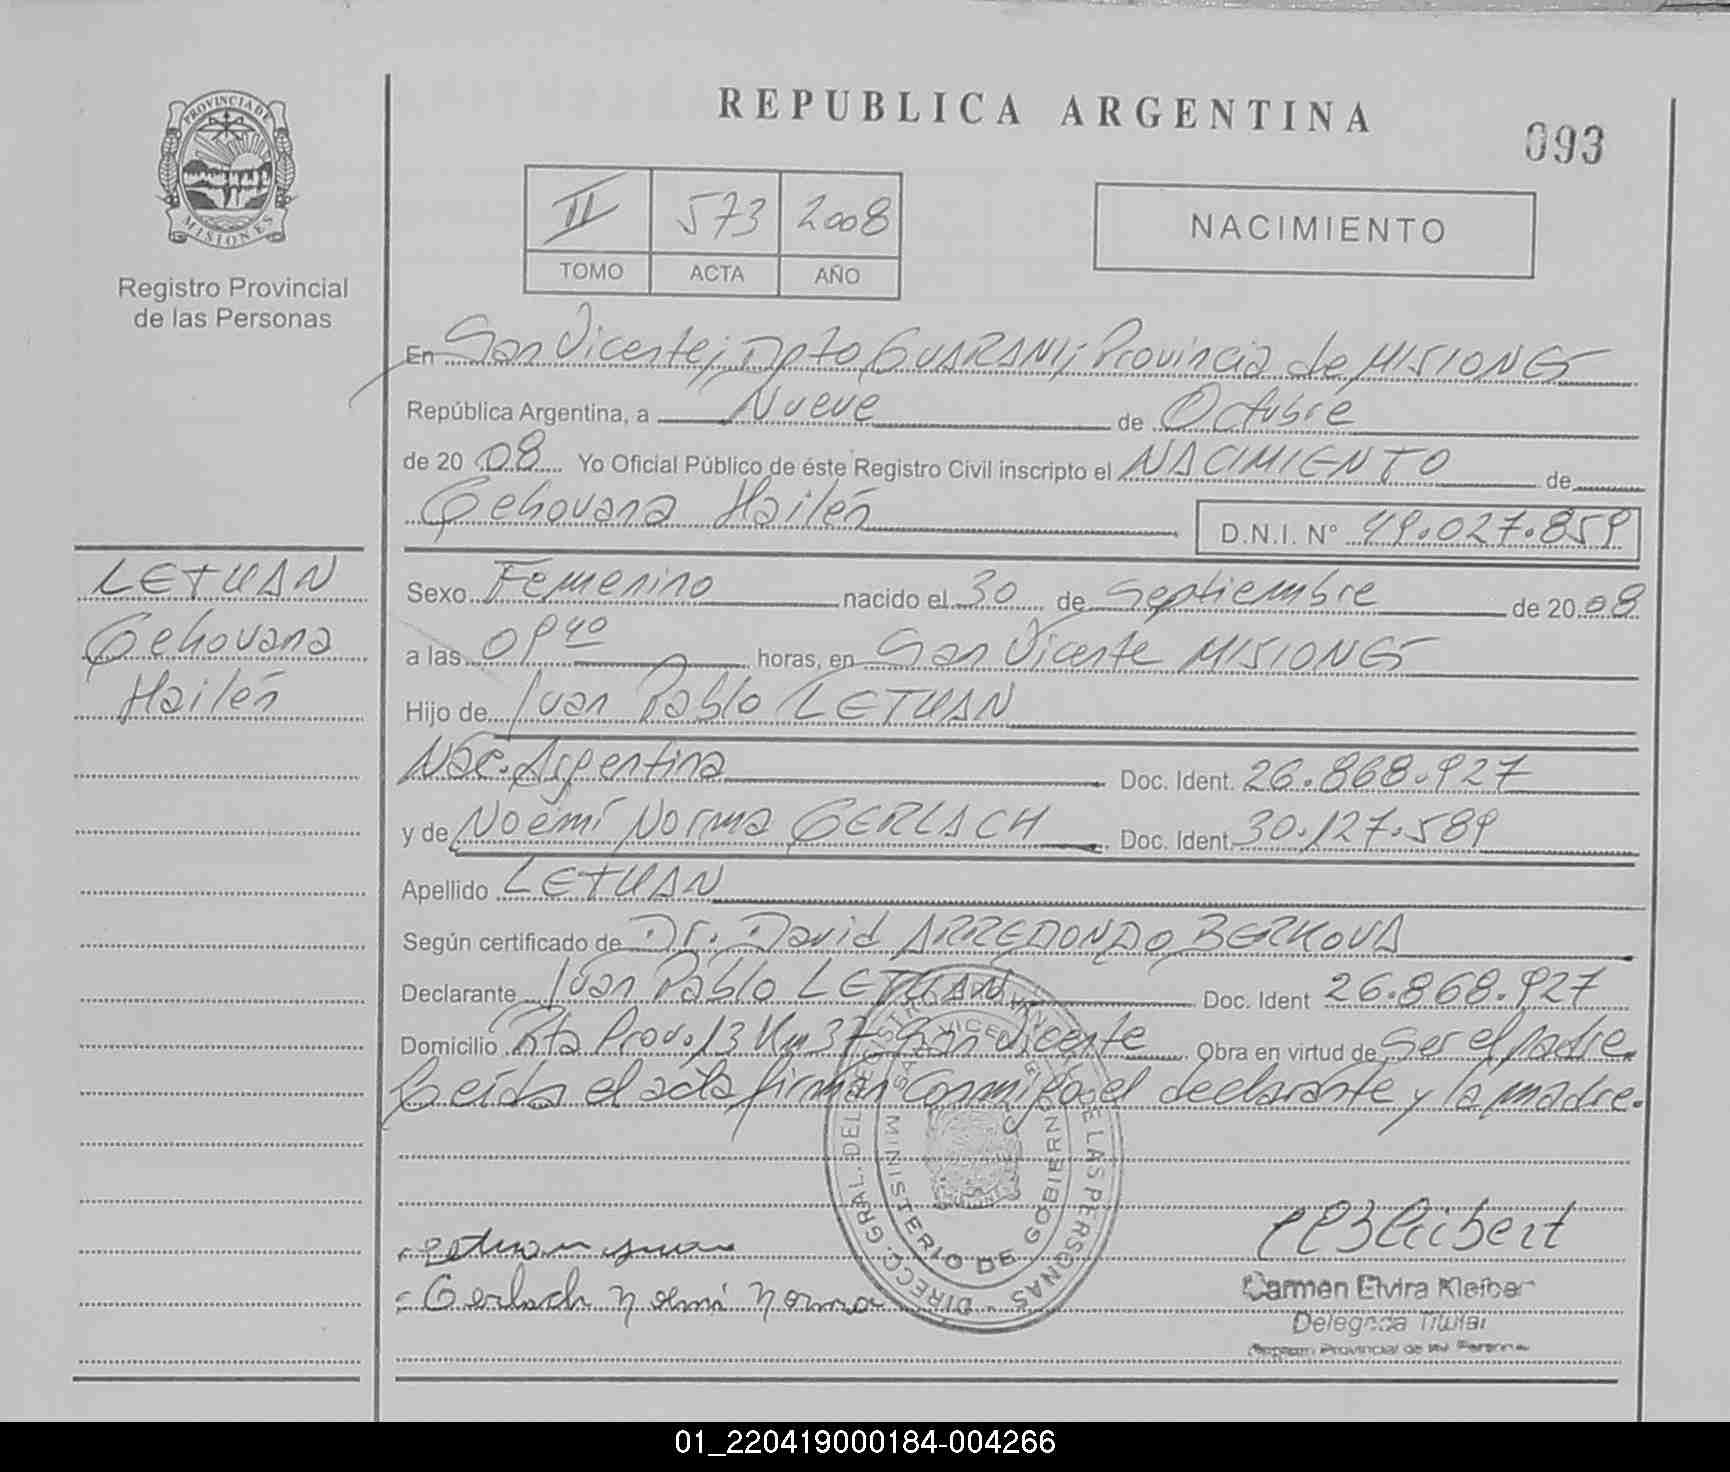 PROVINCIA DE
MISIONES
Registro Provincial
de las Personas
REPUBLICA ARGENTINA
093
II 573 2008
TOMO ACTA AÑO
NACIMIENTO
En San Vicente, Dpto GUARANI, Provincia de MISIONES
República Argentina, a Nueve de Octubre
de 2008 Yo Oficial Público de éste Registro Civil inscripto el NACIMIENTO de
Gehovana Hailén D.N.I. Nº 49.027.859
LETUAN
Gehovana
Hailén
Sexo Femenino nacido el 30 de Septiembre de 2008
a las 09 40 horas, en San Vicente MISIONES
Hijo de Juan Pablo LETUAN
Nac. Argentina Doc. Ident. 26.868.927
y de Noemí Norma GERLACH Doc. Ident. 30.127.589
Apellido LETUAN
Según certificado de Dr. David ARREDONDO BERKOVA
Declarante Juan Pablo LETUAN Doc. Ident 26.868.927
Domicilio Rta Prov. 13 Km 37 San Vicente Obra en virtud de ser el padre.
Leída el acta firman conmigo el declarante y la madre.
DIRECC. GRAL. DEL REGISTRO DE LAS PERSONAS
MINISTERIO DE GOBIERNO
SAN VICENTE
Letuan Juan
Gerlach Noemi Norma
Carmen Elvira Kleiber
Delegada Titular
Registro Provincial de las Personas
01_220419000184-004266